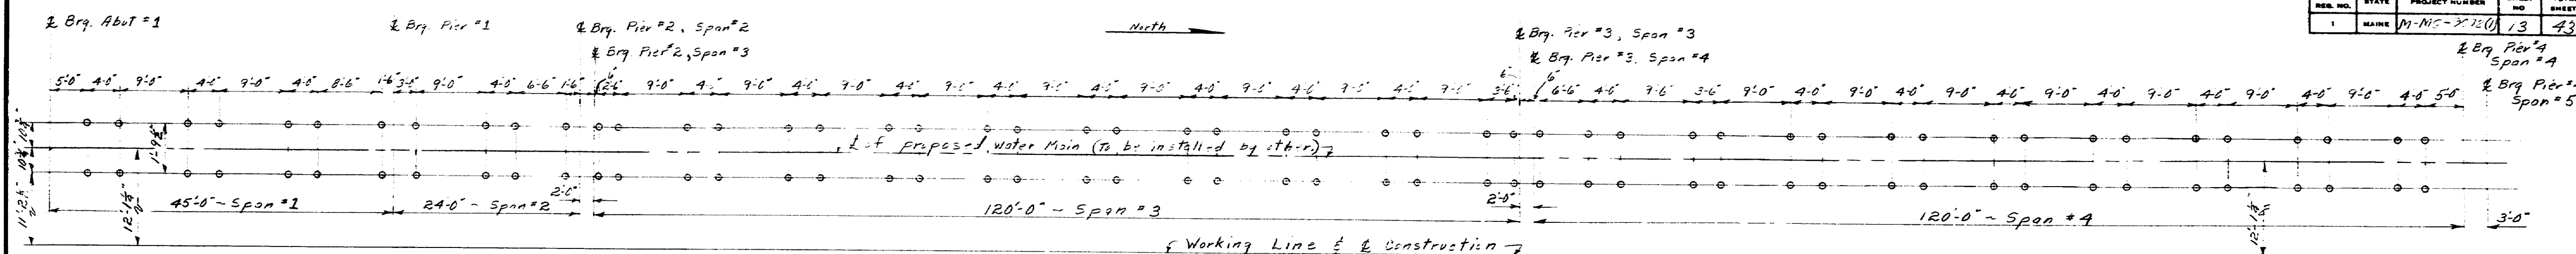 REG. NO. STATE PROJECT NUMBER NO SHEET
1 MAINE 13 43
℄ Brg. Abut #1
℄ Brg. Pier #1
℄ Brg. Pier #2, Span #2
℄ Brg. Pier #2, Span #3
North
℄ Brg. Pier #3, Span #3
℄ Brg. Pier #3, Span #4
℄ Brg Pier #4
Span #4
℄ Brg Pier
Span #5
5'-0" 4'-0" 9'-0" 4'-0" 9'-0" 4'-0" 8'-6" 1'-6" 3'-6" 9'-0" 4'-0" 6'-6" 1'-6" 6" 2'-6" 9'-0" 4'-0" 9'-0" 4'-0" 9'-0" 4'-0" 9'-0" 4'-0" 9'-0" 4'-0" 9'-0" 4'-0" 9'-0" 4'-0" 9'-0" 4'-0" 9'-0" 3'-6" 6" 6" 6'-6" 4'-0" 9'-6" 3'-6" 9'-0" 4'-0" 9'-0" 4'-0" 9'-0" 4'-0" 9'-0" 4'-0" 9'-0" 4'-0" 9'-0" 4'-0" 9'-0" 4'-0" 5'-0"
10½" 10½"
1'-9½"
℄ of proposed water Main (To be installed by other)
11'-2½"
12'-1½"
45'-0" ~ Span #1
24'-0" ~ Span #2
2'-0"
120'-0" ~ Span #3
2'-0"
120'-0" ~ Span #4
12'-1½"
3'-0"
Working Line & ℄ Construction